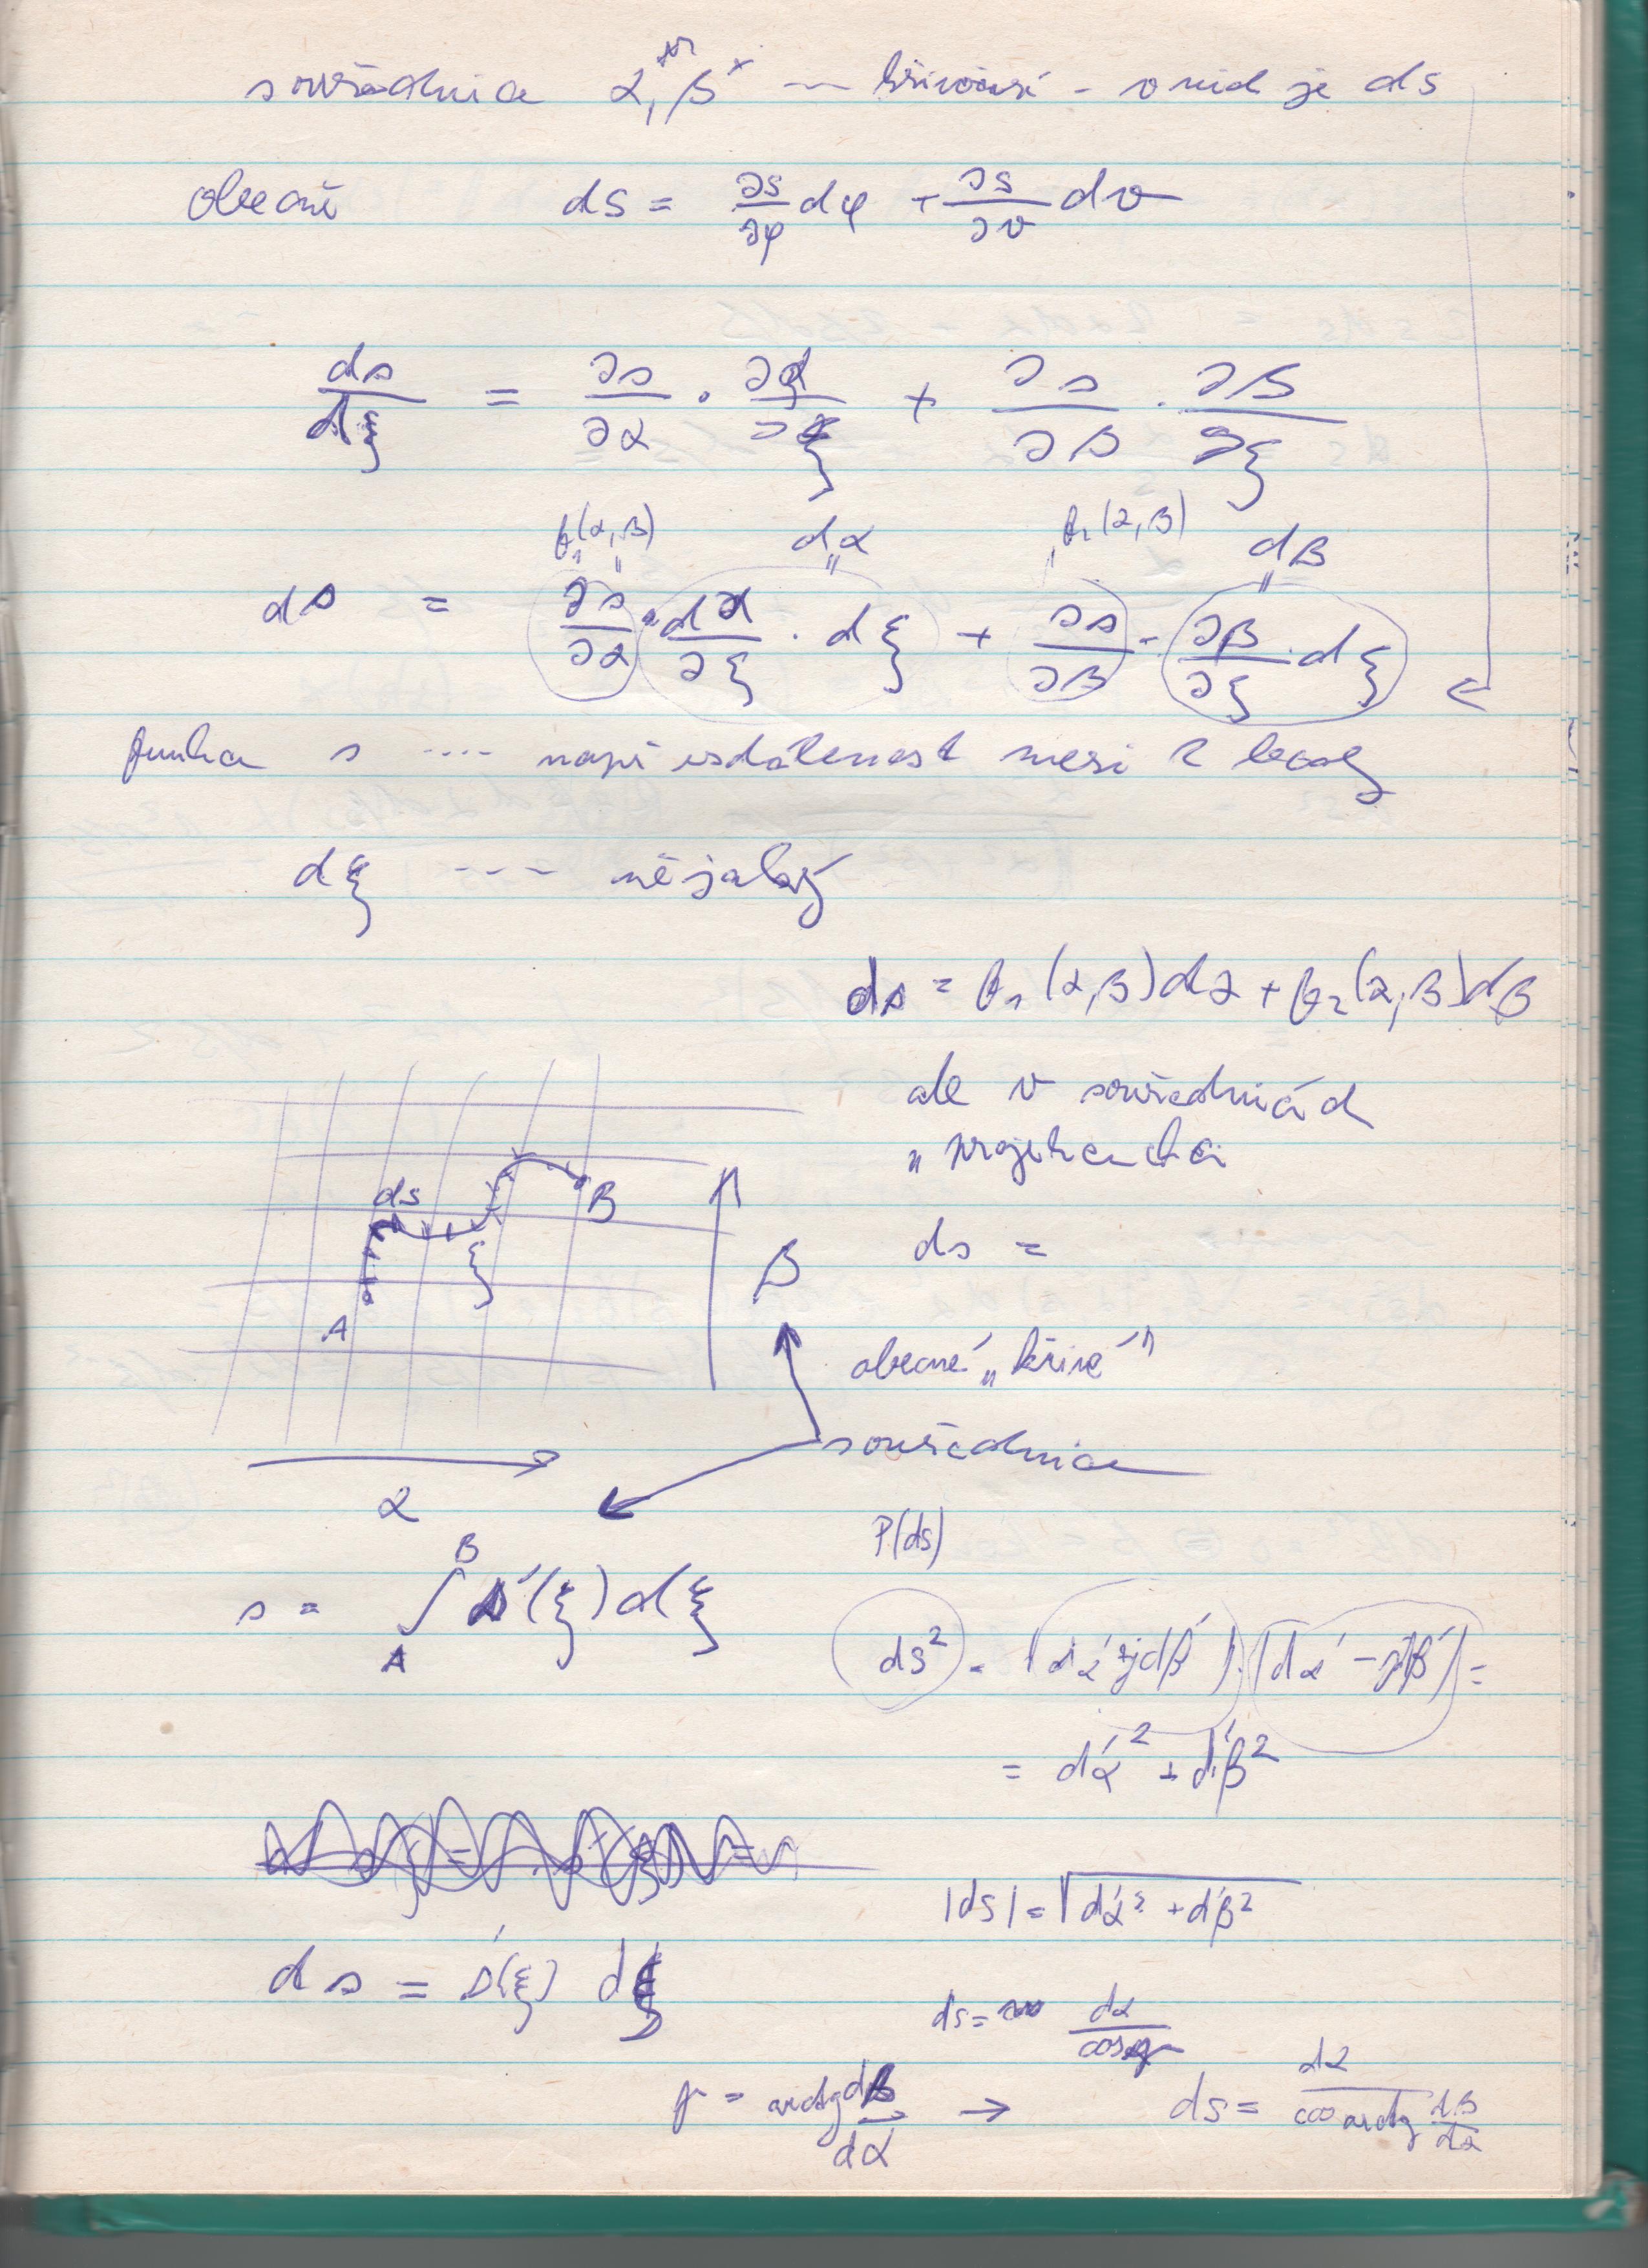 souřadnice α, β --- křivočaré - v nich je ds
obecně ds = ∂s/∂φ dφ + ∂s/∂v dv
ds/dξ = ∂s/∂α · ∂α/∂ξ + ∂s/∂β · ∂β/∂ξ
f₁(α,β) dα f₂(α,β) dβ
ds = ∂s/∂α · dα/∂ξ · dξ + ∂s/∂β · ∂β/∂ξ · dξ
funkce s .... např vzdálenost mezi 2 body
dξ ---- nějaký
ds = f₁(α,β)dα + f₂(α,β)dβ
ale v souřadnicích
"projektanta
ds
B
ξ
A
β
ds =
obecné "křivé"
souřadnice
α
P(ds)
s = ∫ₐᴮ s'(ξ)dξ
ds² = (dα'+jdβ')·(dα'-jdβ') =
= dα'² + dβ'²
|ds| = √dα'² + dβ'²
ds = s'(ξ) dξ
ds = dα/cosγ
γ = arctg dβ/dα → ds = dα/cos arctg dβ/dα